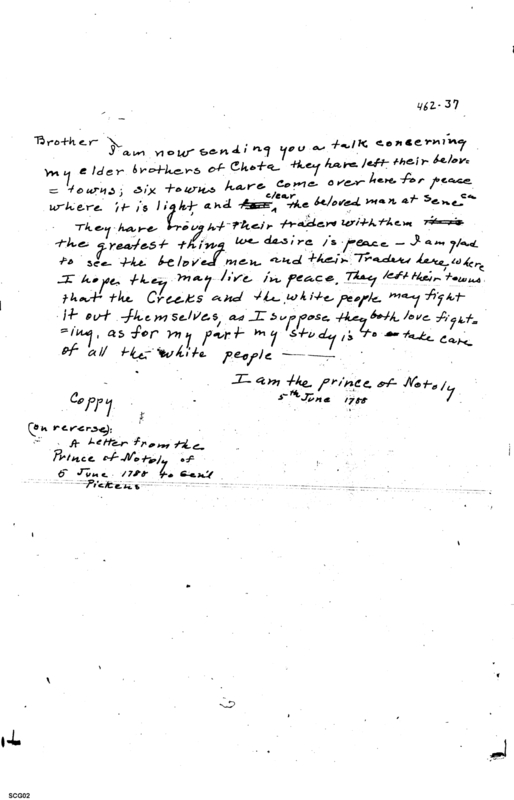 462-37
Brother I am now sending you a talk concerning
my elder brothers of Chota they have left their belov
= towns; six towns have come over here for peace
where it is light, and clear, the beloved man at Seneca
They have brought their traders with them
the greatest thing we desire is peace – I am glad
to see the beloved men and their Traders here, where
I hope they may live in peace. They left their towns
that the Creeks and the white people may fight
it out themselves, as I suppose they both love fight=
=ing, as for my part my study is to take care
of all the white people ———
I am the prince of Notoly
5th June 1788
Coppy
(on reverse):
A Letter from the
Prince of Notoly of
5 June 1788 to Gen'l
Pickens
SCG02